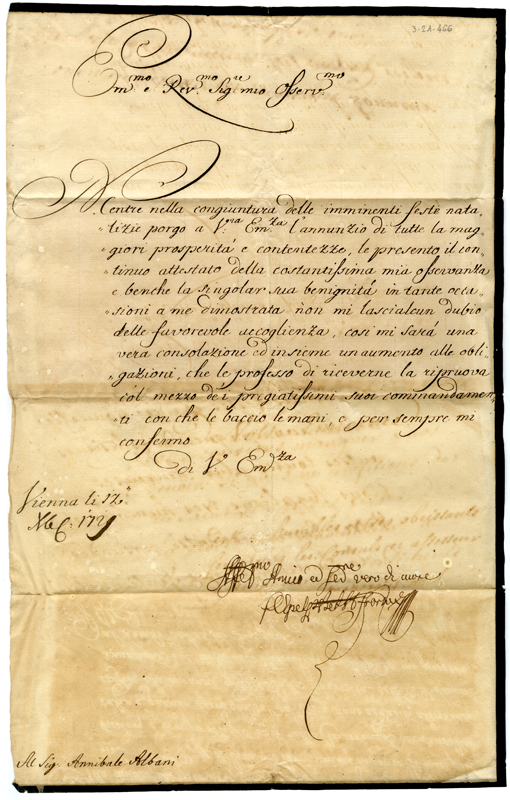 3-2A-466
Em.mo e Rev.mo Sig.re mio Osserv.mo
Mentre nella congiuntura delle imminenti feste nata„
„tizie porgo a V.ra Em.za l'annunzio di tutte la mag„
„giori prosperitá e contentezze, le presento il con„
„tinuo attestato della costantissima mia osservanza
e benche la singolar sua benignitá in tante occa„
„sioni a me dimostrata non mi lascialcun dubio
delle favorevole accoglienza, cosi mi sará una
vera consolazione ed insieme un aumento alle obli„
„gazioni, che le professo di riceverne la ripruova
col mezzo dei prigiatissimi suoi commandamen„
ti con che le baccio le mani, e per sempre mi
confermo
Di V.a Em.za
Vienna li 12„
Xbre. 172
Aff.mo Amico ed vero di cuore
Al Sig. Annibale Albani